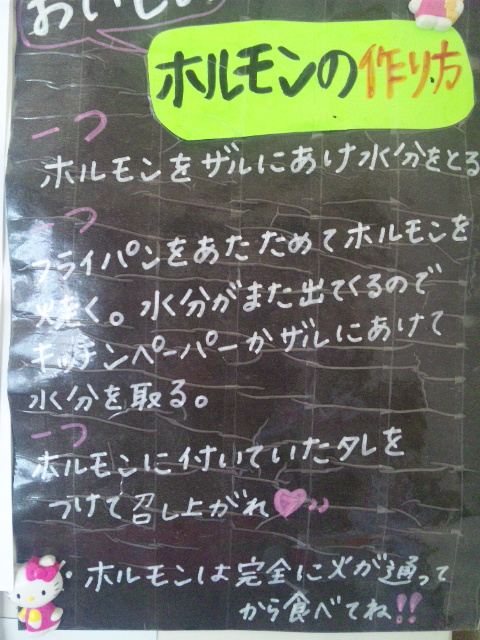 おいしい
ホルモンの作り方
一つ
ホルモンをザルにあけ水分をとる
一つ
フライパンをあたためてホルモンを
焼く。水分がまた出てくるので
キッチンペーパーかザルにあけて
水分を取る。
一つ
ホルモンに付いていたタレを
つけて召し上がれ♥♪♪
・ホルモンは完全に火が通って
から食べてね!!